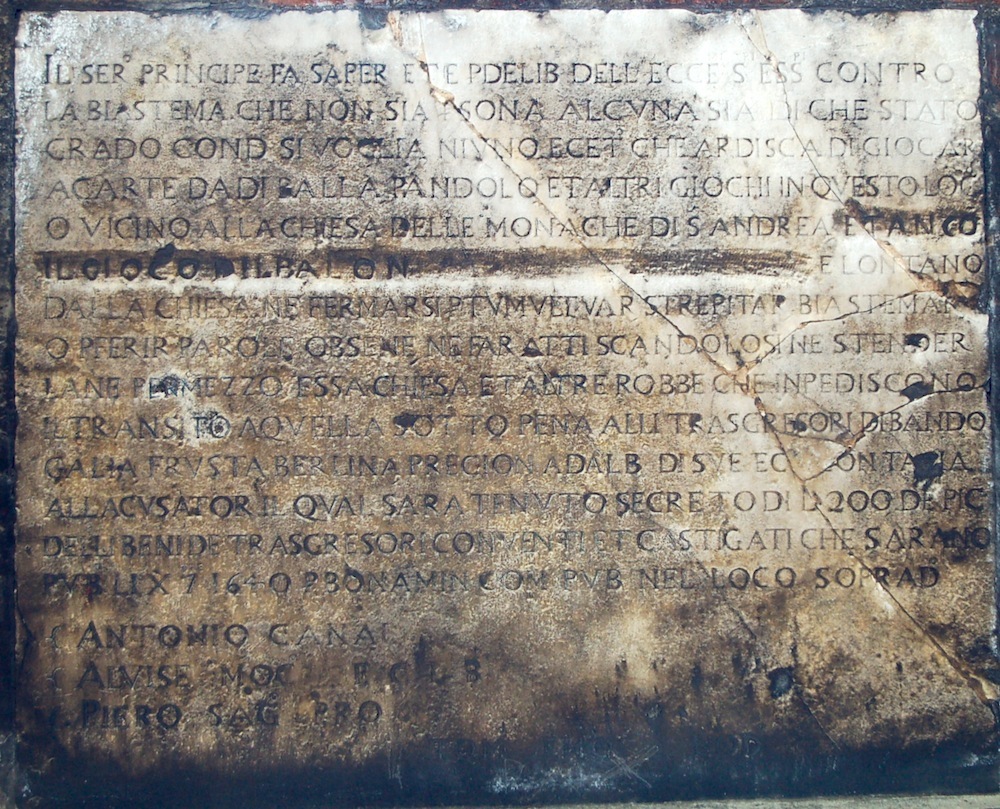 IL SER PRINCIPE FA SAPER ET E PDELIB DELL ECCE S ESS CONTRO
LA BIASTEMA CHE NON SIA PSONA ALCVNA SIA DI CHE STATO
GRADO COND SI VOGLIA NIVNO ECET CHE ARDISCA DI GIOCAR
A CARTE DADI BALLA PANDOLO ET ALTRI GIOCHI IN QVESTO LOG
O VICINO ALLA CHIESA DELLE MONACHE DI S ANDREA ET ANCO
IL GIOCO DIL BALON E LONTANO
DALLA CHIESA NE FERMARSI P TVMVLTVAR STREPITAR BIASTEMAR
O PFERIR PAROLE OBSENE NE FAR ATTI SCANDOLOSI NE STENDER
LANE PER MEZZO ESSA CHIESA ET ALTRE ROBBE CHE INPEDISCONO
IL TRANSITO A QVELLA SOTTO PENA ALLI TRASGRESORI DI BANDO
GALIA FRVSTA BERLINA PREGION ADALB DI SVE ECC CON TAGIA
ALL ACVSATOR IL QVAL SARA TENVTO SECRETO DI L 200 DE PIC
DELLI BENI DE TRASGRESORI CONVENTI ET CASTIGATI CHE SARANO
PVBLI X 7 1640 P BONAMIN COM PVB NEL LOCO SOPRAD
ANTONIO CANAL
ALVISE MOC E C L B
PIERO SAG PRO